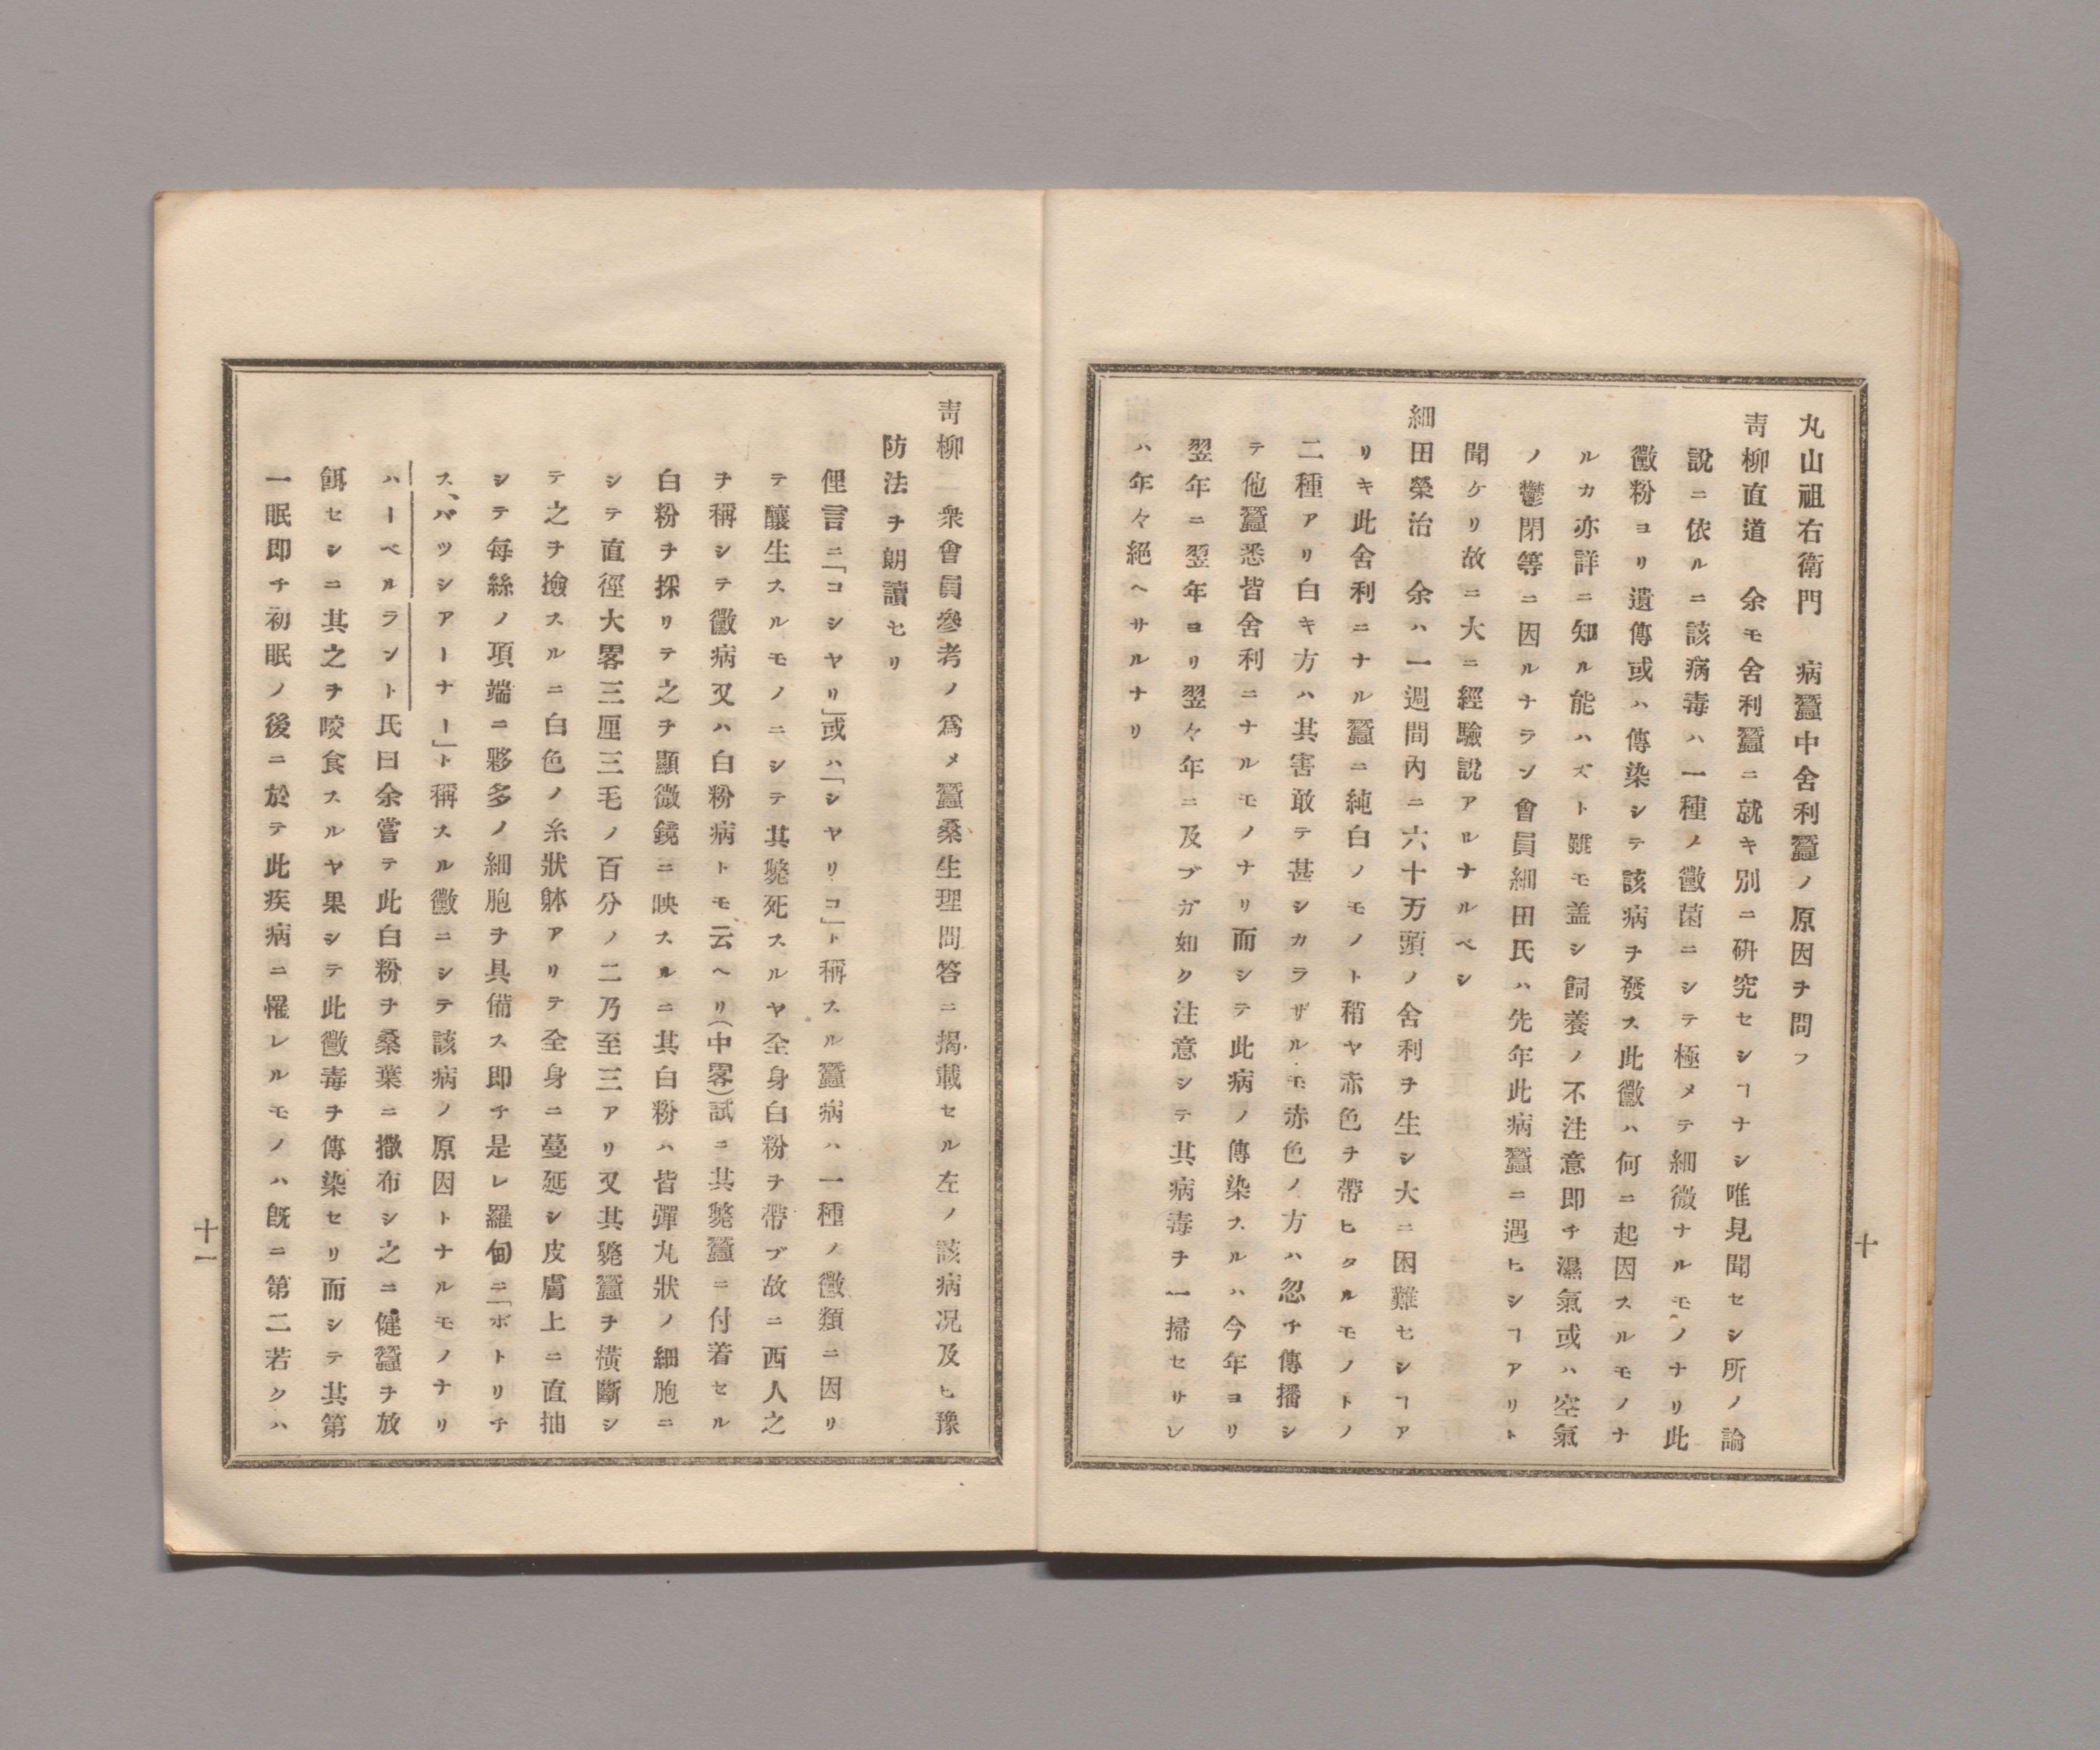 丸山祖右衛門　病蠶中舍利蠶ノ原因ヲ問フ
靑柳直道　余モ舍利蠶ニ就キ別ニ硏究セシヿナシ唯見聞セシ所ノ論
說ニ依ルニ該病毒ハ一種ノ黴菌ニシテ極メテ細微ナルモノナリ此
黴粉ヨリ遺傳或ハ傳染シテ該病ヲ發ス此黴ハ何ニ起因スルモノナ
ルカ亦詳ニ知ル能ハズト雖モ盖シ飼養ノ不注意即チ濕氣或ハ空氣
ノ鬱閉等ニ因ルナラン會員細田氏ハ先年此病蠶ニ遇ヒシヿアリト
聞ケリ故ニ大ニ經驗說アルナルベシ
細田榮治　余ハ一週間內ニ六十万頭ノ舍利ヲ生シ大ニ困難セシヿア
リキ此舍利ニナル蠶ニ純白ノモノト稍ヤ赤色ヲ帶ヒタルモノトノ
二種アリ白キ方ハ其害敢テ甚シカラザルモ赤色ノ方ハ忽チ傳播シ
テ他蠶悉皆舍利ニナルモノナリ而シテ此病ノ傳染スルハ今年ヨリ
翌年ニ翌年ヨリ翌々年ニ及ブガ如ク注意シテ其病毒ヲ一掃セサレ
ハ年々絕ヘサルナリ
十
靑柳　衆會員參考ノ爲メ蠶桑生理問答ニ揭載セル左ノ該病况及ヒ豫
防法ヲ朗讀セリ
俚言ニ「コシヤリ」或ハ「シヤリコ」ト稱スル蠶病ハ一種ノ黴類ニ因リ
テ釀生スルモノニシテ其斃死スルヤ全身白粉ヲ帶ブ故ニ西人之
ヲ稱シテ黴病又ハ白粉病トモ云ヘリ（中畧）試ニ其斃蠶ニ付着セル
白粉ヲ採リテ之ヲ顯微鏡ニ映スルニ其白粉ハ皆彈丸狀ノ細胞ニ
シテ直徑大畧三厘三毛ノ百分ノ二乃至三アリ又其斃蠶ヲ橫斷シ
テ之ヲ撿スルニ白色ノ糸狀躰アリテ全身ニ蔓延シ皮膚上ニ直抽
シテ每絲ノ項端ニ夥多ノ細胞ヲ具備ス即チ是レ羅甸ニ「ボトリチ
ス、バツシアーナー」ト稱スル黴ニシテ該病ノ原因トナルモノナリ
ハーベルラント氏曰余嘗テ此白粉ヲ桑葉ニ撒布シ之ニ健蠶ヲ放
餌セシニ其之ヲ咬食スルヤ果シテ此黴毒ヲ傳染セリ而シテ其第
一眠即チ初眠ノ後ニ於テ此疾病ニ罹レルモノハ旣ニ第二若クハ
十一